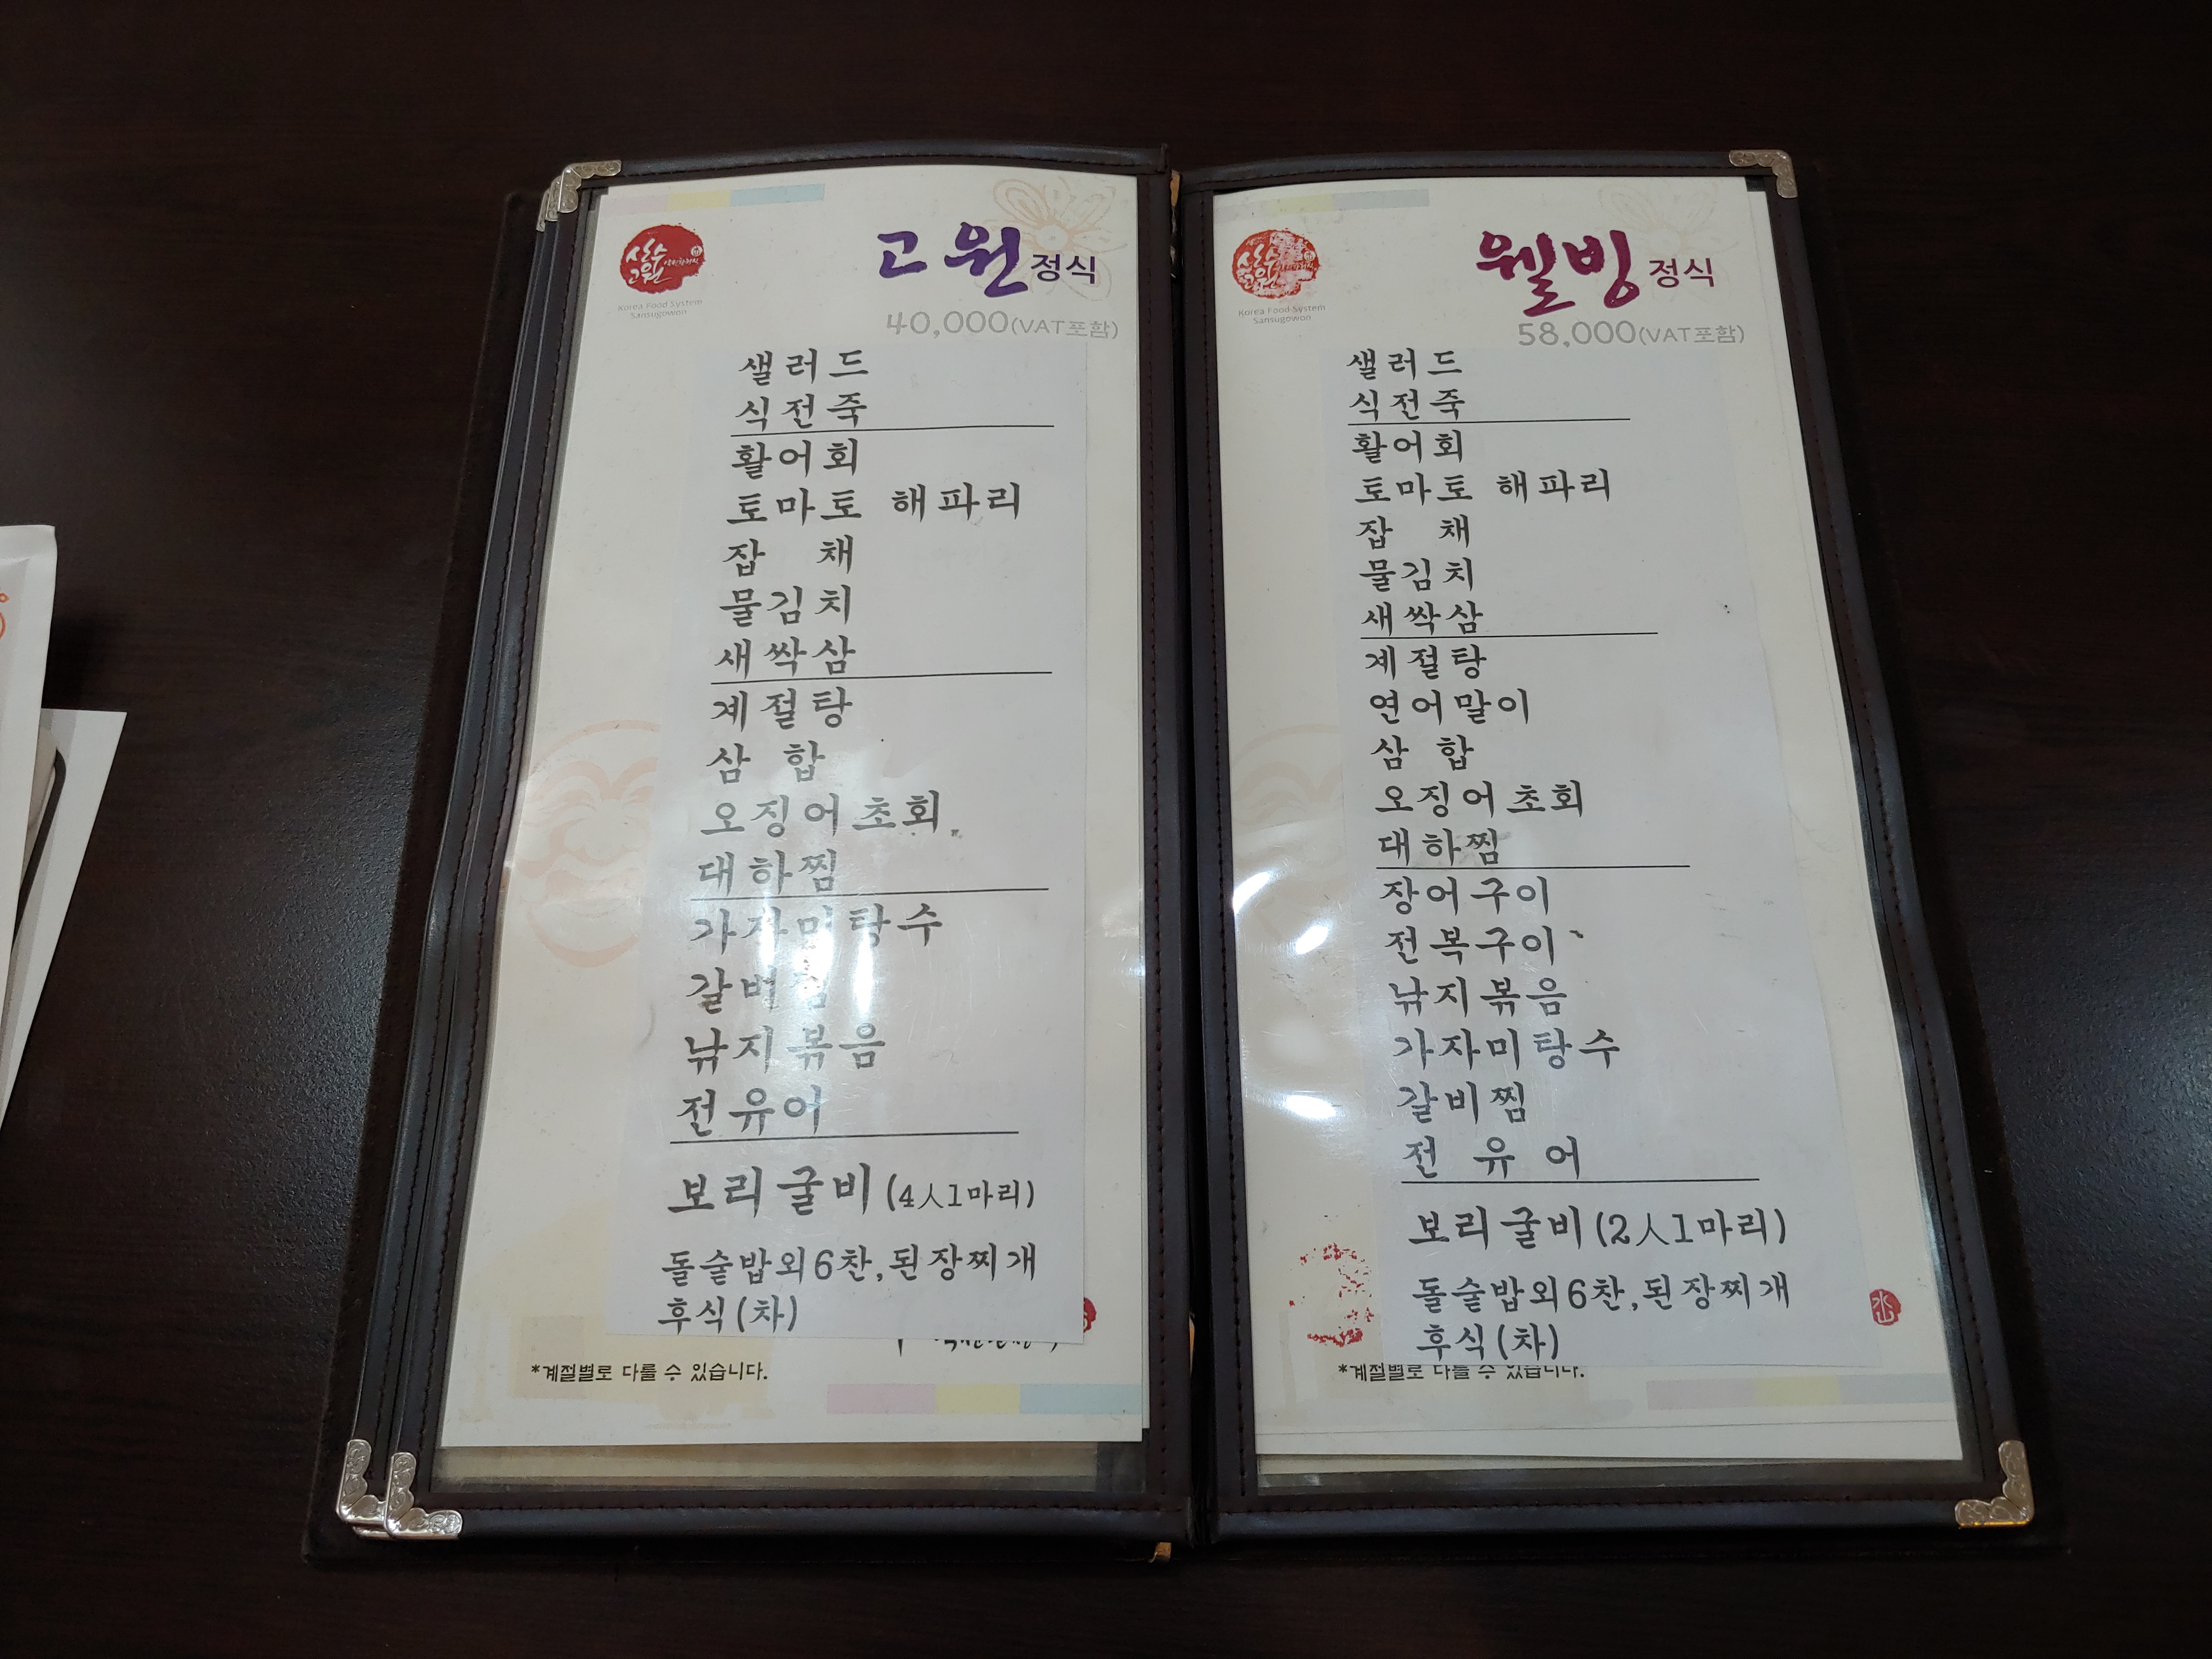 산수
고원
Korea Food System
Sansugowon
고원정식
40,000(VAT포함)
샐러드
식전죽
활어회
토마토 해파리
잡 채
물김치
새싹삼
계절탕
삼 합
오징어초회
대하찜
가자미탕수
갈비찜
낚지볶음
전유어
보리굴비(4人1마리)
돌솥밥외6찬,된장찌개
후식(차)
*계절별로 다를 수 있습니다.
산수
고원
Korea Food System
Sansugowon
웰빙정식
58,000(VAT포함)
샐러드
식전죽
활어회
토마토 해파리
잡 채
물김치
새싹삼
계절탕
연어말이
삼 합
오징어초회
대하찜
장어구이
전복구이
낚지볶음
가자미탕수
갈비찜
전 유 어
보리굴비(2人1마리)
돌솥밥외6찬,된장찌개
후식(차)
*계절별로 다를 수 있습니다.